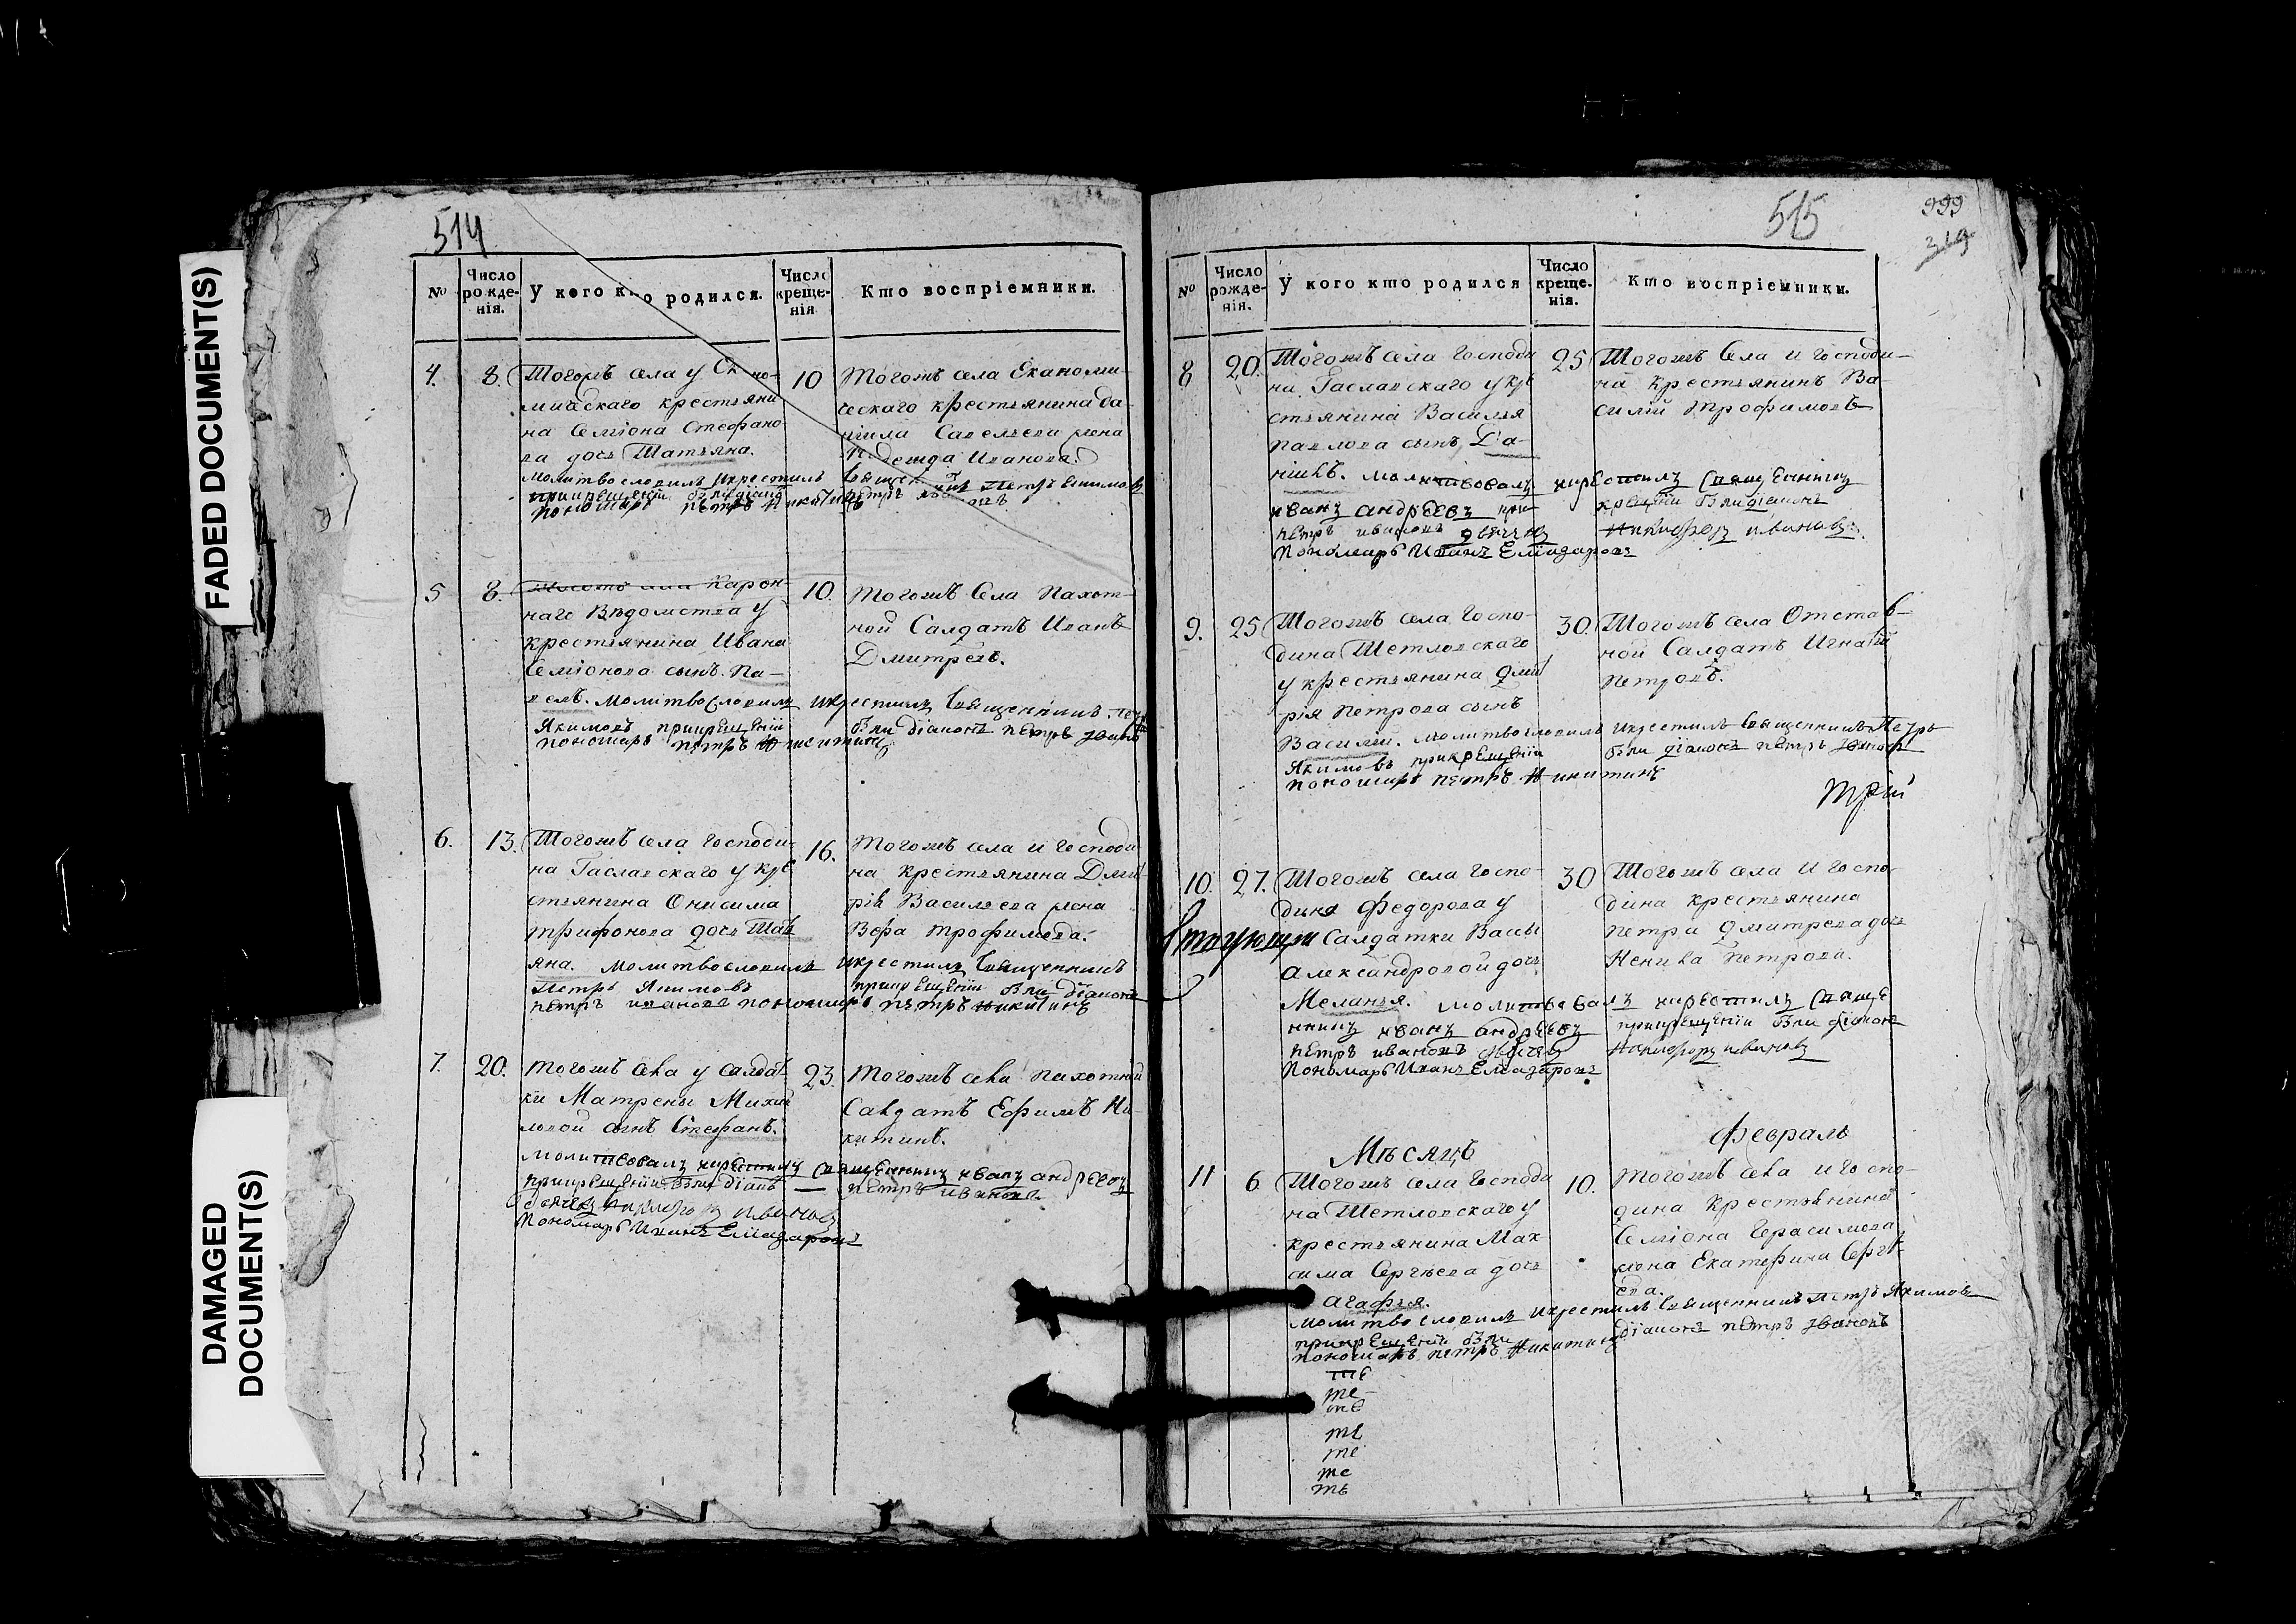 FADED DOCUMENT(S)
DAMAGED
DOCUMENT(S)
514
№
Число рожде-нія.
У кого кто родился.
Число креще-нія
Кто воспріемники.
4. 8. 10
Тогожъ села у Еконо-
мическаго крестьяни
на Семіона Стефано-
ва дочь Татьяна.
Молитвословилъ икрестилъ
прикрещеніи были діаконъ
пономарь петръ Никитинъ
Тогожъ села Економи-
ческаго крестьянина Да-
нила Савельева жена
Надежда Иванова.
5 8. 10.
Карон-
наго Вѣдомства у
крестьянина Ивана
Семіонова сынъ Па-
велъ. молитвословилъ икрестилъ Священникъ
Якимовъ прикрещеніи были діаконъ петръ Ивано
пономарь петръ Никитинъ
Тогожъ Села Пахот-
ной Салдатъ Иванъ
Дмитревъ.
6. 13. 16.
Тогожъ села Господи-
на Гаславскаго у кре
стьянина Онисима
трифонова дочь Тать
яна. молитвословилъ икрестилъ Священникъ
Петръ Якимовъ прикрещеніи были діаконъ
петръ ивановъ пономарь петръ Никитинъ
Тогожъ села и Господи
на крестьянина Дмит
рія Васильева жена
Вера Трофимова.
7. 20. 23.
Тогожъ села у салдат
ки Матрены Михай
ловой сынъ Стефанъ.
молитвовалъ икрестилъ Священникъ иванъ андреевъ
прикрещеніи были діаконъ — петръ ивановъ
дьячекъ Никифоръ ивановъ
Пономарь Иванъ Елиазаровъ
Тогожъ села пахотной
Салдатъ Ефимъ Ни-
китинъ.
515
999
319
№
Число рожде-нія.
У кого кто родился
Число креще-нія.
Кто воспріемники.
8 20. 25
Тогожъ села Господи
на Гаславскаго у кре
стьянина Василья
павлова сынъ Да-
ніилъ. молитвовалъ икрестилъ Священникъ
иванъ андреевъ при- крещеніи были діаконъ
петръ ивановъ дьячекъ Никифоръ ивановъ
Пономарь Иванъ Елиазаровъ
Тогожъ Села и Господи-
на Крестьянинъ Ва-
силій Трофимовъ
9. 25 30.
Тогожъ села Госпо-
дина Шетловскаго
у крестьянина Дмит
рія Петрова сынъ
Василій. молитвословилъ икрестилъ Священникъ Петръ
Якимовъ прикрещеніи были діаконъ петръ Иванов
пономарь петръ Никитинъ
Тогожъ села Отстав-
ной Салдатъ Игнатій
Петровъ.
трій
10. 27. 30
Тогожъ села Госпо-
дина Федорова у
Салдатки Васы
Александровой дочь
Меланья. молитвовалъ икрестилъ Священ
никъ иванъ андреевъ прикрещеніи были діаконъ
петръ ивановъ дьячекъ Никифоръ ивановъ
Пономарь Иванъ Елиазаровъ
Тогожъ села И Госпо-
дина крестьянина
петра дмитрева дочь
Ненила Петрова.
Мѣсяцъ Февраль
11 6 10.
Тогожъ села Господи
на Шетловскаго у
крестьянина Мак-
сима Сергѣева дочь
Агафья.
молитвословилъ икрестилъ Священникъ Петръ Якимовъ
прикрещеніи были діаконъ петръ Ивановъ
пономарь петръ Никитинъ
Тогожъ села и Госпо-
дина Крестьянина
Семіона Герасимова
жена Екатерина Сергѣ-
ева.
те
те
те
те
те
те
те